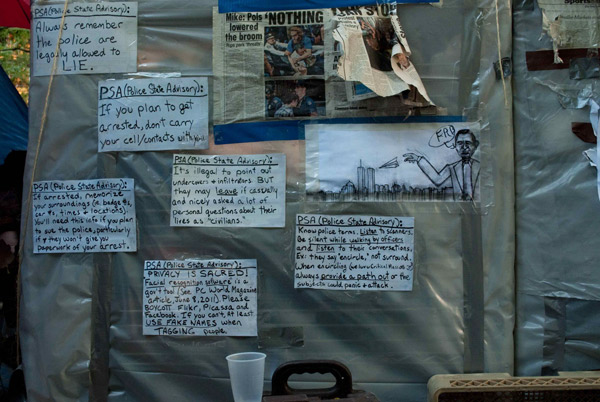 PSA (Police State Advisory):
Always remember
the police are
legally allowed to
LIE.
Mike: Pols
lowered
the broom
'NOTHING
PSA (Police State Advisory):
If you plan to get
arrested, don't carry
your cell/contacts with you.
PSA (Police State Advisory):
It's illegal to point out
undercovers + infiltrators BUT
they may leave if casually
and nicely asked a lot of
personal questions about their
lives as "civilians."
ERO
PSA (Police State Advisory):
If arrested, memorize
your surroundings (ie badge #s,
car #s, times + locations).
You'll need this info if you plan
to sue the police, particularly
if they won't give you
paperwork of your arrest.
PSA (Police State Advisory):
Know police terms. Listen to scanners.
Be silent while walking by officers
and listen to their conversations.
Ex: they say "encircle," not surround.
When encircling
always provide a path out or the
subject could panic + attack.
PSA (Police State Advisory):
PRIVACY IS SACRED!
Facial recognition software is a
gov't tool (See PC World Magazine
article, June 8, 2011). Please
BOYCOTT Flikr, Picassa and
Facebook. If you can't, at least
USE FAKE NAMES when
TAGGING people.